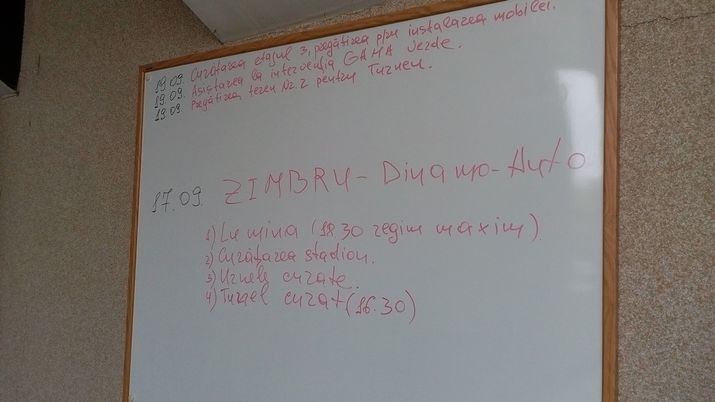 19.09. Curățarea etajul 3, pregătirea p/ru instalarea mobilei.
19.09. Asistarea la intervenția GAMA Verde.
19.09. Pregătirea teren Nr.2 pentru Turneu.
17.09. ZIMBRU - Dinamo-Auto
1) Lumina (18.30 regim maxim)
2) Curățarea stadion.
3) Urnele curate.
4) curat (16.30)